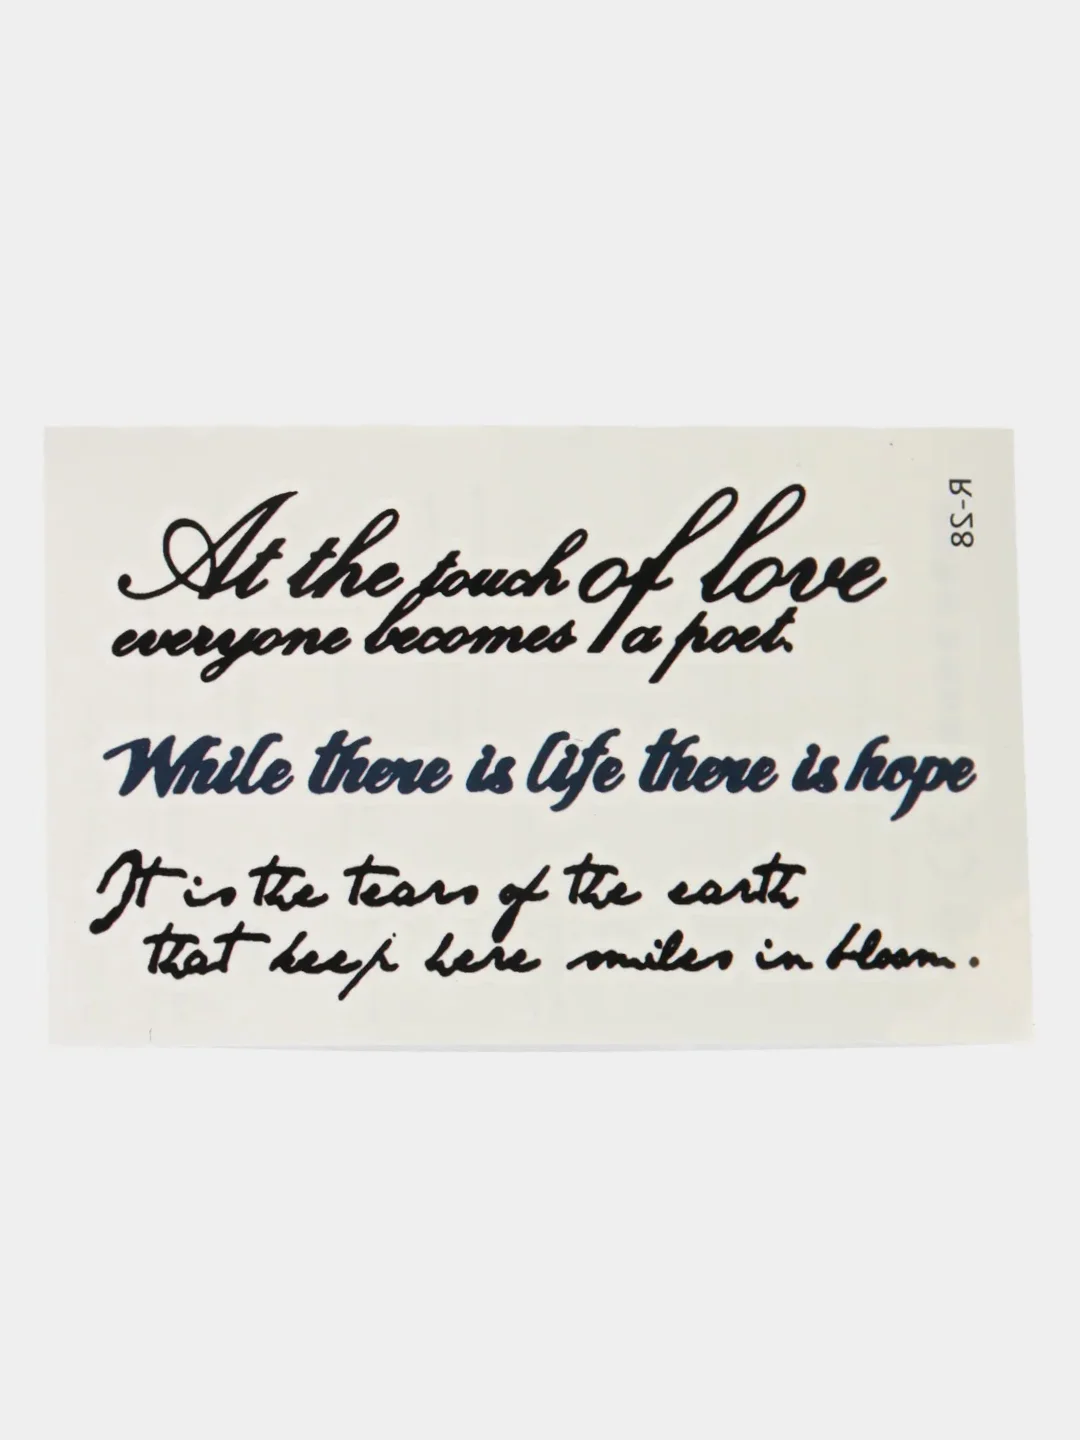 At the touch of love
everyone becomes a poet.
While there is life there is hope
It is the tears of the earth
that keep here smiles in bloom.
R-28